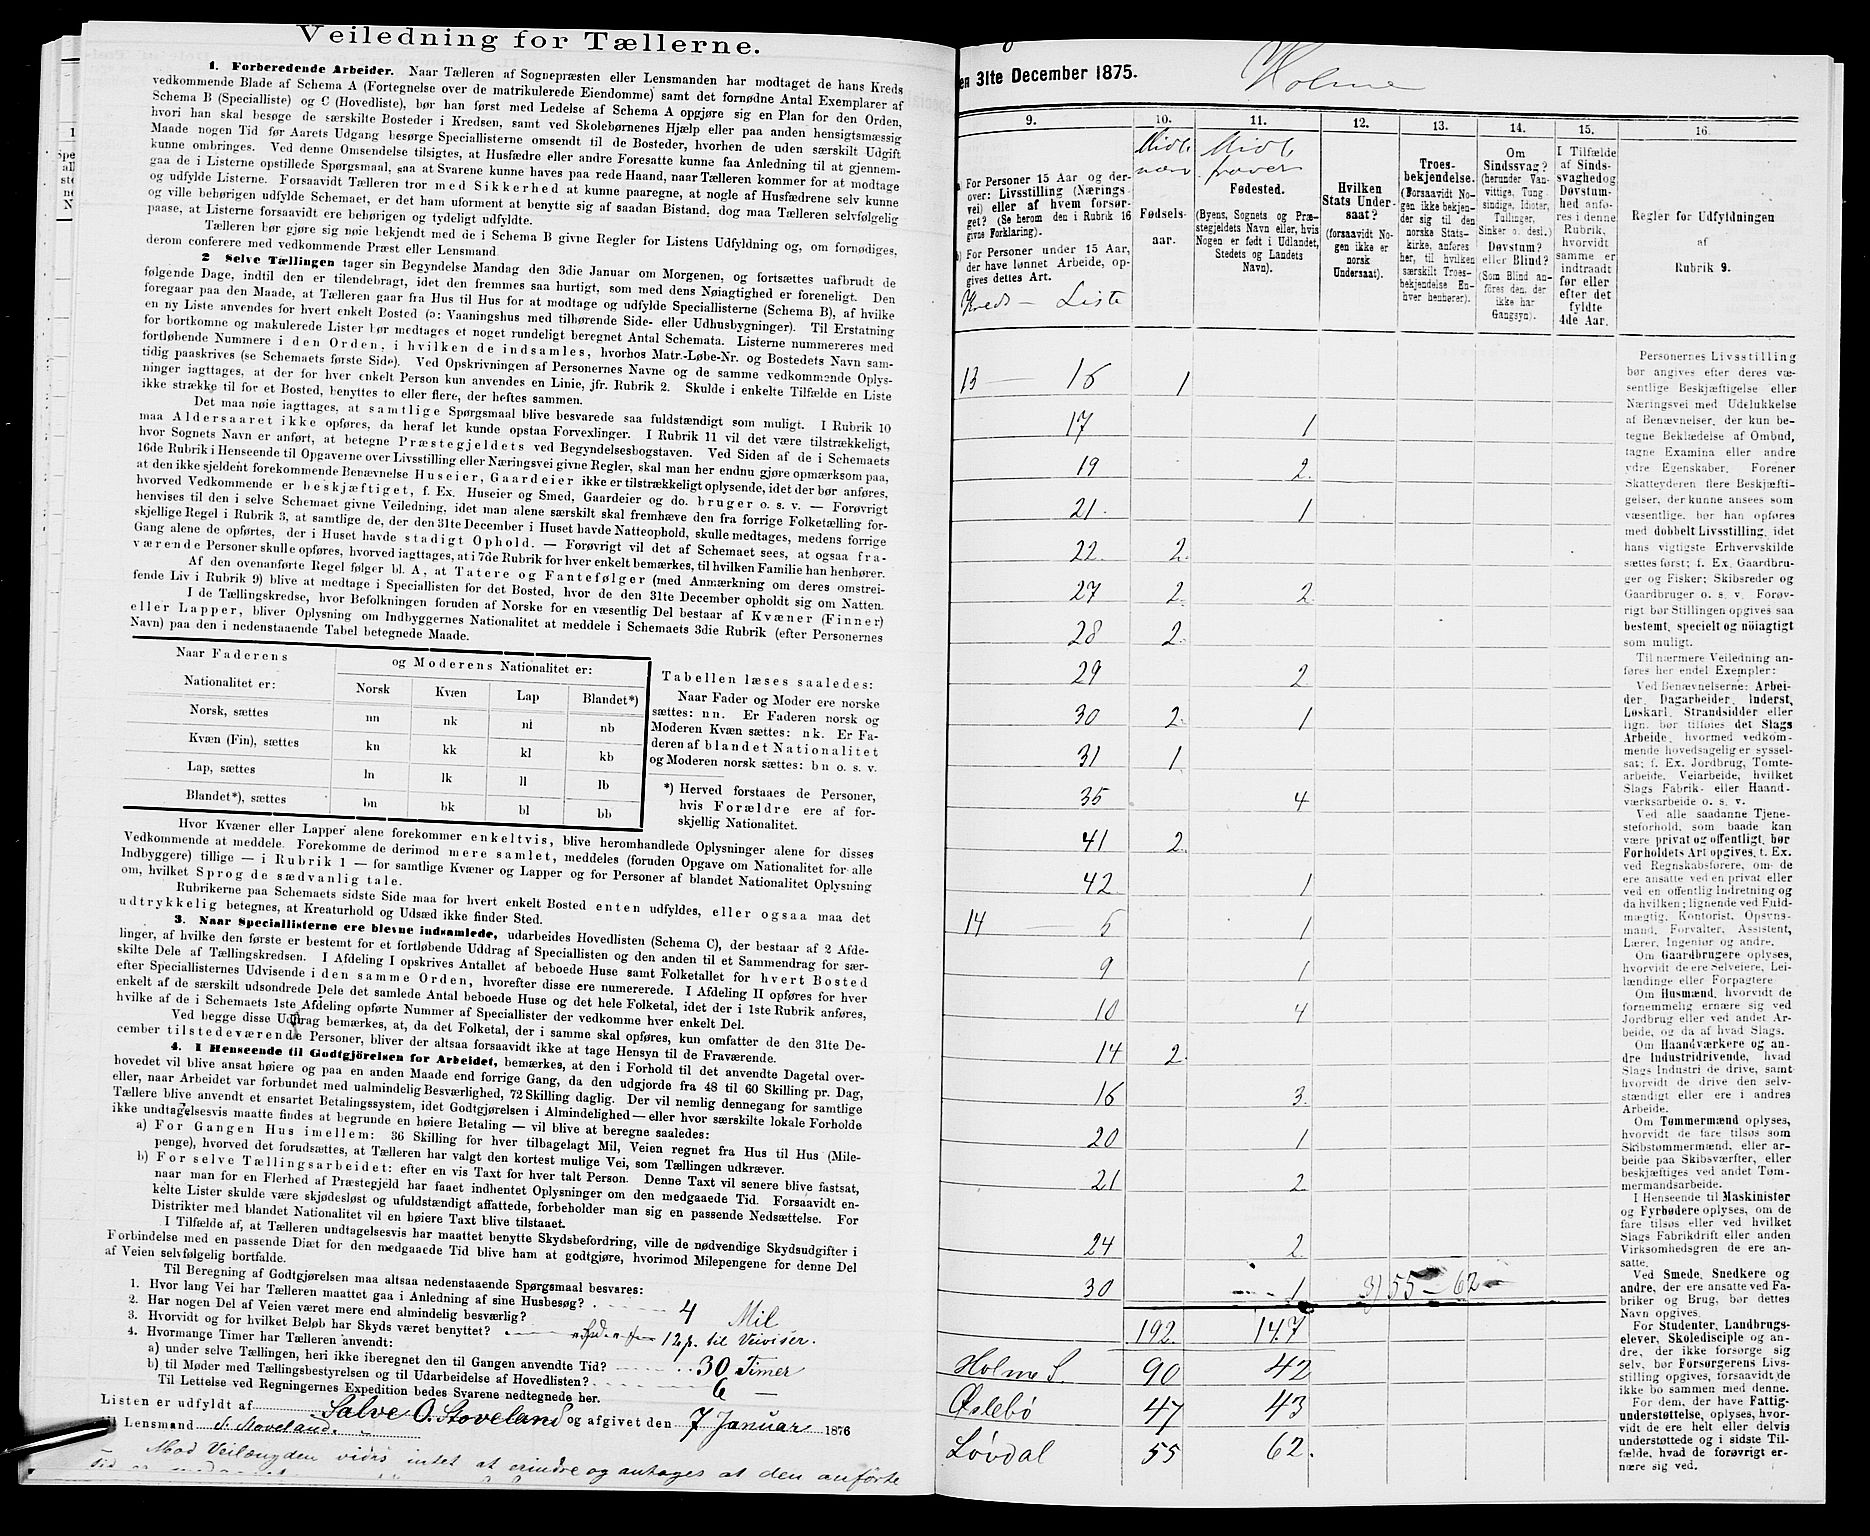 Veiledning for Tællerne.
1. Forberedende Arbeider. Naar Tælleren af Sognepræsten eller Lensmanden har modtaget de hans Kreds
vedkommende Blade af Schema A (Fortegnelse over de matrikulerede Eiendomme) samt det fornødne Antal Exemplarer af
Schema B (Specialliste) og C (Hovedliste), bør han først med Ledelse af Schema A opgjøre sig en Plan for den Orden,
hvori han skal besøge de særskilte Bosteder i Kredsen, samt ved Skolebørnenes Hjælp eller paa anden hensigtsmæssig
Maade nogen Tid før Aarets Udgang besørge Speciallisterne omsendt til de Bosteder, hvorhen de uden særskilt Udgift
kunne ombringes. Ved denne Omsendelse tilsigtes, at Husfædre eller andre Foresatte kunne faa Anledning til at gjennem-
gaa de i Listerne opstillede Spørgsmaal, saa at Svarene kunne haves paa rede Haand, naar Tælleren kommer for at modtage
og udfylde Listerne. Forsaavidt Tælleren tror med Sikkerhed at kunne paaregne, at nogle af Husfædrene selv kunne
og ville behørigen udfylde Schemaet, er det ham uforment at benytte sig af saadan Bistand, dog maa Tælleren selvfølgelig
paase, at Listerne forsaavidt ere behørigen og tydeligt udfyldte.
Tælleren bør gjøre sig nøie bekjendt med de i Schema B givne Regler for Listens Udfyldning og, om fornødiges,
derom conferere med vedkommende Præst eller Lensmand.
2 Selve Tællingen tager sin Begyndelse Mandag den 3die Januar om Morgenen, og fortsættes uafbrudt de
følgende Dage, indtil den er tilendebragt, idet den fremmes saa hurtigt, som med dens Nøiagtighed er foreneligt. Den
foregaar paa den Maade, at Tælleren gaar fra Hus til Hus for at modtage og udfylde Speciallisterne (Schema B), af hvilke
en ny Liste anvendes for hvert enkelt Bosted (ɔ: Vaaningshus med tilhørende Side- eller Udhusbygninger). Til Erstatning
for bortkomne og makulerede Lister bør medtages et noget rundeligt beregnet Antal Schemata. Listerne nummereres med
fortløbende Nummere i den Orden, i hvilken de indsamles, hvorhos Matr.-Løbe-Nr. og Bostedets Navn sam-
tidig paaskrives (se Schemaets første Side). Ved Opskrivningen af Personernes Navne og de samme vedkommende Oplys-
ninger iagttages, at der for hver enkelt Person kun anvendes en Linie, jfr. Rubrik 2. Skulde i enkelte Tilfælde en Liste
ikke strække til for et Bosted, benyttes to eller flere, der heftes sammen.
Det maa nøie iagttages, at samtlige Spørgsmaal blive besvarede saa fuldstændigt som muligt. I Rubrik 10
maa Aldersaaret ikke opføres, da heraf let kunde opstaa Forvexlinger. I Rubrik 11 vil det være tilstrækkeligt,
hvor Sognets Navn er anført, at betegne Præstegjeldets ved Begyndelsesbogstaven. Ved Siden af de i Schemaets
16de Rubrik i Henseende til Opgaverne over Livsstilling eller Næringsvei givne Regler, skal man her endnu gjøre opmærksom paa,
at den ikke sjeldent forekommende Benævnelse Huseier, Gaardeier ikke er tilstrækkeligt oplysende, idet der bør anføres,
hvorved Vedkommende er beskjæftiget, f. Ex. Huseier og Smed, Gaardeier og do. bruger o. s. v. — Forøvrigt
henvises til den i selve Schemaet givne Veiledning, idet man alene særskilt skal fremhæve den fra forrige Folketælling for-
skjellige Regel i Rubrik 3, at samtlige de, der den 31te December i Huset havde Natteophold, skulle medtages, medens forrige
Gang alene de opførtes, der i Huset havde stadigt Ophold. — Forøvrigt vil det af Schemaet sees, at ogsaa fra-
værende Personer skulle opføres, hvorved iagttages, at i 7de Rubrik for hver enkelt bemærkes, til hvilken Familie han henhører.
Af den ovenanførte Regel følger bl. A, at Tatere og Fantefølger (med Anmærkning om deres omstrei-
fende Liv i Rubrik 9) blive at medtage i Speciallisten for det Bosted, hvor de den 31te December opholdt sig om Natten.
I de Tællingskredse, hvor Befolkningen foruden af Norske for en væsentlig Del bestaar af Kvæner (Finner)
eller Lapper, bliver Oplysning om Indbyggernes Nationalitet at meddele i Schemaets 3die Rubrik (efter Personernes
Navn) paa den i nedenstaaende Tabel betegnede Maade.
Naar Faderens og Moderens Nationalitet er:
Nationalitet er: Norsk Kvæn Lap Blandet*)
Norsk, sættes nn nk nl nb
Kvæn (Fin), sættes kn kk kl kb
Lap, sættes ln lk ll lb
Blandet*), sættes bn bk bl bb
Tabellen læses saaledes:
Naar Fader og Moder ere norske
sættes: nn. Er Faderen norsk og
Moderen Kvæn sættes: nk. Er Fa-
deren af blandet Nationalitet
og Moderen norsk sættes: bn o. s. v.
*) Herved forstaaes de Personer,
hvis Forældre ere af for-
skjellig Nationalitet.
Hvor Kvæner eller Lapper alene forekommer enkeltvis, blive heromhandlede Oplysninger alene for disses
Vedkommende at meddele. Forekomme de derimod mere samlet, meddeles (foruden Opgave om Nationalitet for alle
Indbyggere) tillige — i Rubrik 1 — for samtlige Kvæner og Lapper og for Personer af blandet Nationalitet Oplysning
om, hvilket Sprog de sædvanlig tale.
Rubrikerne paa Schemaets sidste Side maa for hvert enkelt Bosted enten udfyldes, eller ogsaa maa det
udtrykkelig betegnes, at Kreaturhold og Udsæd ikke finder Sted.
3. Naar Speciallisterne ere blevne indsamlede, udarbeides Hovedlisten (Schema C), der bestaar af 2 Afde-
linger, af hvilke den første er bestemt for et fortløbende Uddrag af Speciallisten og den anden til et Sammendrag for sær-
skilte Dele af Tællingskredsen. I Afdeling I opskrives Antallet af beboede Huse samt Folketallet for hvert Bosted
efter Speciallisternes Udvisende i den samme Orden, hvorefter disse ere numererede. I Afdeling II opføres for hver
enkelt af de særskilt udsondrede Dele det samlede Antal beboede Huse og det hele Folketal, idet der i 1ste Rubrik anføres,
hvilke af de i Schemaets 1ste Afdeling opførte Nummer af Speciallister der vedkomme hver enkelt Del.
Ved begge disse Uddrag bemærkes, at, da det Folketal, der i samme skal opføres, kun omfatter de den 31te De-
cember tilstedeværende Personer, bliver der altsaa forsaavidt ikke at tage Hensyn til de Fraværende.
4. I Henseende til Godtgjörelsen for Arbeidet, bemærkes, at den i Forhold til det anvendte Dagetal over-
hovedet vil blive ansat høiere og paa en anden Maade end forrige Gang, da den udgjorde fra 48 til 60 Skilling pr. Dag,
eller, naar Arbeidet var forbundet med ualmindelig Besværlighed, 72 Skilling daglig. Der vil nemlig dennegang for samtlige
Tællere blive anvendt et ensartet Betalingssystem, idet Godtgjørelsen i Almindelighed — eller hvor særskilte lokale Forholde
ikke undtagelsesvis maatte findes at begrunde en høiere Betaling — vil blive at beregne saaledes:
a) For Gangen Hus imellem: 36 Skilling for hver tilbagelagt Mil, Veien regnet fra Hus til Hus (Mile-
penge), hvorved det forudsættes, at Tælleren har valgt den kortest mulige Vei, som Tællingen udkræver.
b) For selve Tællingsarbeidet: efter en vis Taxt for hver talt Person. Denne Taxt vil senere blive fastsat,
naar man for en Flerhed af Præstegjeld har faaet indhentet Oplysninger om den medgaaede Tid. Forsaavidt en-
kelte Lister skulde være skjødesløst og ufuldstændigt affattede, forbeholder man sig en passende Nedsættelse. For
Distrikter med blandet Nationalitet vil en høiere Taxt blive tilstaaet.
I Tilfælde af, at Tælleren undtagelsesvis har maattet benytte Skydsbefordring, ville de nødvendige Skydsudgifter i
Forbindelse med en passende Diæt for den medgaaede Tid blive ham at godtgjøre, hvorimod Milepengene for denne Del
af Veien selvfølgelig bortfalde.
Til Beregning af Godtgjørelsen maa altsaa nedenstaaende Spørgsmaal besvares:
1. Hvor lang Vei har Tælleren maattet gaa i Anledning af sine Husbesøg? 4 Mil
2. Har nogen Del af Veien været mere end almindelig besværlig?
3. Hvorvidt og for hvilket Beløb har Skyds været benyttet? 12 p. til Veiviser.
4. Hvormange Timer har Tælleren anvendt:
a) under selve Tællingen, heri ikke iberegnet den til Gangen anvendte Tid? 30 Timer
b) til Møder med Tællingsbestyrelsen og til Udarbeidelse af Hovedlisten? 6 —
Til Lettelse ved Regningernes Expedition bedes Svarene nedtegnede her.
Listen er udfyldt af Salve O. Stoveland og afgivet den 7 Januar 1876
Lensmand S. Stoveland.
Mod Veilængden vides intet at erindre og antages at den anførte
en 31te December 1875. Holme
9. 10. 11. 12. 13. 14. 15. 16.
For Personer 15 Aar og der-
over: Livsstilling (Nærings
vei) eller af hvem forsør-
get? (Se herom den i Rubrik 16
givne Forklaring).
For Personer under 15 Aar,
der have lønnet Arbeide, op-
gives dettes Art.
Kreds — Liste
Midl. nærv.
Fødsels-
aar.
Midl. fraver
Fødested.
(Byens, Sognets og Præ-
stegjeldets Navn eller, hvis
Nogen er født i Udlandet,
Stedets og Landets
Navn).
Hvilken
Stats Under-
saat?
(forsaavidt No-
gen ikke er
norsk
Undersaat).
Troes-
bekjendelse.
(Forsaavidt No-
gen ikke bekjen-
der sig til den
norske Stats-
kirke, anføres
her, til hvilken
særskilt Troes-
bekjendelse En-
hver henhører).
Om
Sindssvag?
(herunder Van-
vittige, Tung-
sindige, Idioter,
Tullinger,
Sinker o. desl.)
Døvstum?
eller Blind?
(Som Blind an-
føres den, der
ikke har
Gangsyn).
I Tilfælde
af Sinds-
svaghed og
Døvstum-
hed anfø-
res i denne
Rubrik,
hvorvidt
samme er
indtraadt
før eller
efter det
fyldte
4de Aar.
Regler for Udfyldningen
af
Rubrik 9.
13 — 16 1
17 1
19 2.
21. 1
22 2.
27 2. 2.
28 2.
29 2
30 2. 1
31 1.
35 4
41 2.
42 1
14 — 5 1
9 1
10 4
14 2.
16 3.
20 1
21 2.
24 2.
30 1 3) 55 — 62 —
192. 147
Holme S. 90 42
Øslebö 47 43
Lövdal 55 62.
Personernes Livsstilling
bør angives efter deres væ-
sentlige Beskjæftigelse eller
Næringsvei med Udelukkelse
af Benævnelser, der kun be-
tegne Beklædelse af Ombud,
tagne Examina eller andre
ydre Egenskaber. Forener
Skatteyderen flere Beskjæfti-
gelser, der kunne ansees som
væsentlige, bør han opføres
med dobbelt Livsstilling, idet
hans vigtigste Erhvervskilde
sættes først; f. Ex. Gaardbru-
ger og Fisker; Skibsreder og
Gaardbruger o. s. v. Forøv-
rigt bør Stillingen opgives saa
bestemt, specielt og nöiagtigt
som muligt.
Til nærmere Veiledning an-
føres her endel Exempler:
Ved Benævnelserne: Arbei-
der, Dagarbeider, Inderst,
Løskarl, Strandsidder eller
lign. bør tilføies det Slags
Arbeide, hvormed vedkom-
mende hovedsagelig er syssel-
sat; f. Ex. Jordbrug, Tomte-
arbeide, Veiarbeide, hvilket
Slags Fabrik- eller Haand-
værksarbeide o. s. v.
Ved alle saadanne Tjene-
steforhold, som baade kan
være privat og offentligt, bør
Forholdets Art opgives, f. Ex.
ved Regnskabsførere, om de
ere ansatte ved en privat eller
ved en offentlig Indretning og
da hvilken; lignende ved Fuld-
mægtig, Kontorist, Opsyns-
mand, Forvalter, Assistent,
Lærer, Ingeniør og andre.
Om Gaardbrugere oplyses,
hvorvidt de ere Selveiere, Lei-
lændinge eller Forpagtere
Om Husmænd, hvorvidt de
fornemmelig ernære sig ved
Jordbrug eller ved andet Ar-
beide, og da af hvad Slags.
Om Haandværkere og an-
dre Industridrivende, hvad
Slags Industri de drive, samt
hvorvidt de drive den selv-
stændigt eller ere i andres
Arbeide.
Om Tømmermænd oplyses,
hvorvidt de fare tilsøs som
Skibstømmermænd, eller ar-
beide paa Skibsværfter, eller
beskjæftiges ved andet Tøm-
mermandsarbeide.
I Henseende til Maskinister
og Fyrbødere oplyses, om de
fare tilsøs eller ved hvilket
Slags Fabrikdrift eller anden
Virksomhedsgren de ere an-
satte.
Ved Smede, Snedkere og
andre, der ere ansatte ved Fa-
briker og Brug, bør dettes
Navn opgives.
For Studenter, Landbrugs-
elever, Skoledisciple og an-
dre, der ikke forsørge sig
selv, bør Forsørgerens Livs-
stilling opgives, forsaavidt de
ikke bo sammen med denne.
For dem, der have Fattig-
understøttelse, oplyses, hvor-
vidt de ere helt eller delvis
understøttede og i sidste Til-
fælde, hvad de forøvrigt er-
nære sig ved.